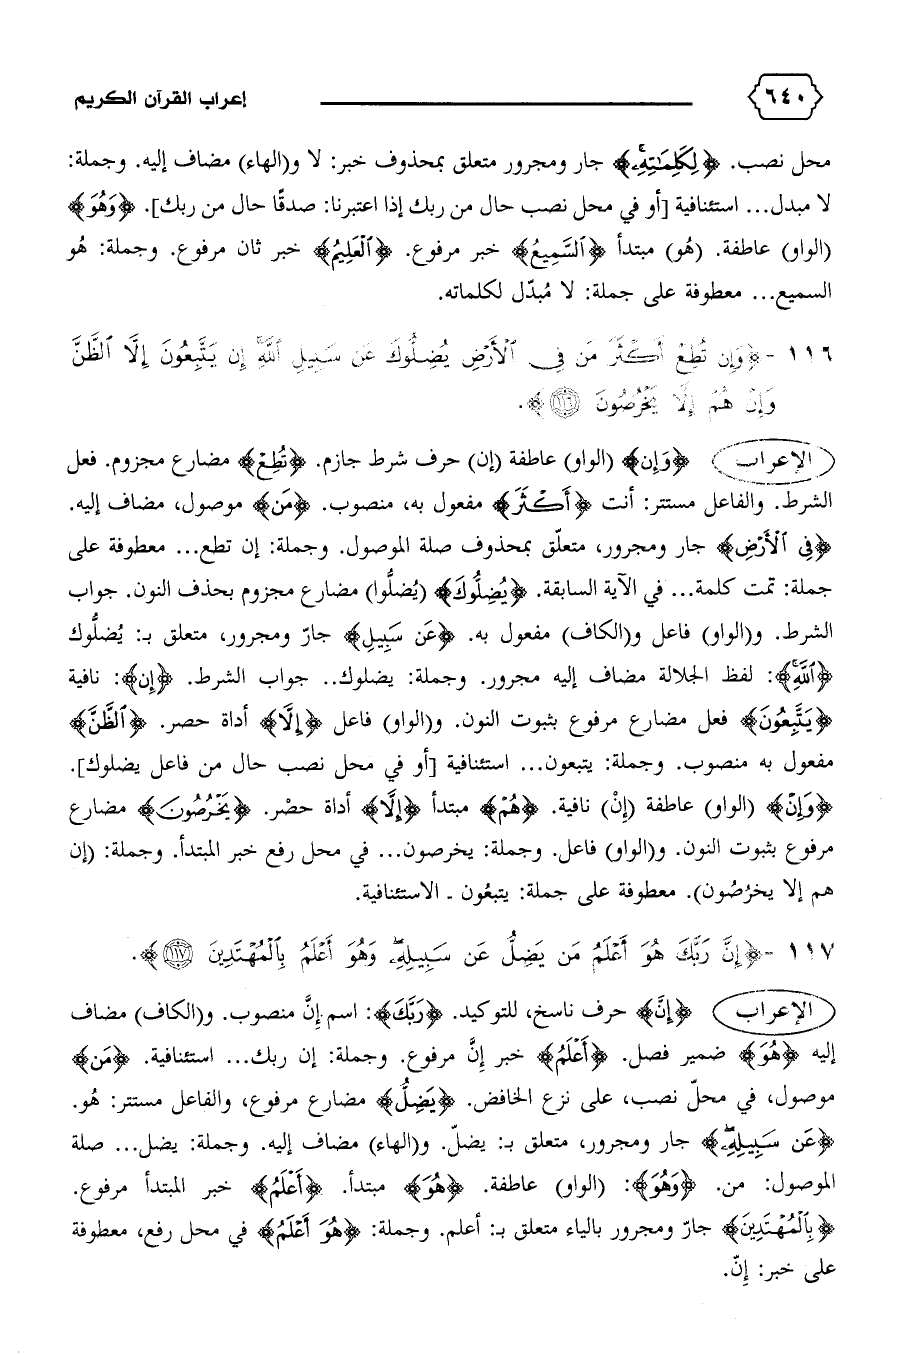 ٦٤٠ إعراب القرآن الكريم
محل نصب. ﴿لِكَلِمَٰتِهِۦۚ﴾ جار ومجرور متعلق بمحذوف خبر: لا و(الهاء) مضاف إليه. وجملة:
لا مبدل... استئنافية [أو في محل نصب حال من ربك إذا اعتبرنا: صدقًا حال من ربك]. ﴿وَهُوَ﴾
(الواو) عاطفة. (هُو) مبتدأ ﴿ٱلسَّمِيعُ﴾ خبر مرفوع. ﴿ٱلْعَلِيمُ﴾ خبر ثان مرفوع. وجملة: هُو
السميع... معطوفة على جملة: لا مُبدّل لكلماته.
١١٦ - ﴿وَإِن تُطِعْ أَكْثَرَ مَن فِى ٱلْأَرْضِ يُضِلُّوكَ عَن سَبِيلِ ٱللَّهِۚ إِن يَتَّبِعُونَ إِلَّا ٱلظَّنَّ
وَإِنْ هُمْ إِلَّا يَخْرُصُونَ ١١٦﴾.
الإعراب ﴿وَإِن﴾ (الواو) عاطفة (إن) حرف شرط جازم. ﴿تُطِعْ﴾ مضارع مجزوم. فعل
الشرط. والفاعل مستتر: أنت ﴿أَكْثَرَ﴾ مفعول به، منصوب. ﴿مَن﴾ موصول، مضاف إليه.
﴿فِى ٱلْأَرْضِ﴾ جار ومجرور، متعلّق بمحذوف صلة الموصول. وجملة: إن تطع... معطوفة على
جملة: تمت كلمة... في الآية السابقة. ﴿يُضِلُّوكَ﴾ (يُضلُّوا) مضارع مجزوم بحذف النون. جواب
الشرط. و(الواو) فاعل و(الكاف) مفعول به. ﴿عَن سَبِيلِ﴾ جارّ ومجرور، متعلق بـ: يُضلُّوك
﴿ٱللَّهِۚ﴾: لفظ الجلالة مضاف إليه مجرور. وجملة: يضلوك.. جواب الشرط. ﴿إِن﴾: نافية
﴿يَتَّبِعُونَ﴾ فعل مضارع مرفوع بثبوت النون. و(الواو) فاعل ﴿إِلَّا﴾ أداة حصر. ﴿ٱلظَّنَّ﴾
مفعول به منصوب. وجملة: يتبعون... استئنافية [أو في محل نصب حال من فاعل يضلوك].
﴿وَإِنْ﴾ (الواو) عاطفة (إنْ) نافية. ﴿هُمْ﴾ مبتدأ ﴿إِلَّا﴾ أداة حصْر. ﴿يَخْرُصُونَ﴾ مضارع
مرفوع بثبوت النون. و(الواو) فاعل. وجملة: يخرصون... في محل رفع خبر المبتدأ. وجملة: (إن
هم إلا يخرُصُون). معطوفة على جملة: يتبعُون ـ الاستئنافية.
١١٧ - ﴿إِنَّ رَبَّكَ هُوَ أَعْلَمُ مَن يَضِلُّ عَن سَبِيلِهِۦۖ وَهُوَ أَعْلَمُ بِٱلْمُهْتَدِينَ ١١٧﴾.
الإعراب ﴿إِنَّ﴾ حرف ناسخ، للتوكيد. ﴿رَبَّكَ﴾: اسم إنَّ منصوب. و(الكاف) مضاف
إليه ﴿هُوَ﴾ ضمير فصل. ﴿أَعْلَمُ﴾ خبر إنَّ مرفوع. وجملة: إن ربك... استئنافية. ﴿مَن﴾
موصول، في محلّ نصب، على نزع الخافض. ﴿يَضِلُّ﴾ مضارع مرفوع، والفاعل مستتر: هُو.
﴿عَن سَبِيلِهِۦۖ﴾ جار ومجرور، متعلق بـ: يضلّ. و(الهاء) مضاف إليه. وجملة: يضل... صلة
الموصول: من. ﴿وَهُوَ﴾: (الواو) عاطفة. ﴿هُوَ﴾ مبتدأ. ﴿أَعْلَمُ﴾ خبر المبتدأ مرفوع.
﴿بِٱلْمُهْتَدِينَ﴾ جارّ ومجرور بالياء متعلق بـ: أعلم. وجملة: ﴿هُوَ أَعْلَمُ﴾ في محل رفع، معطوفة
على خبر: إِنّ.